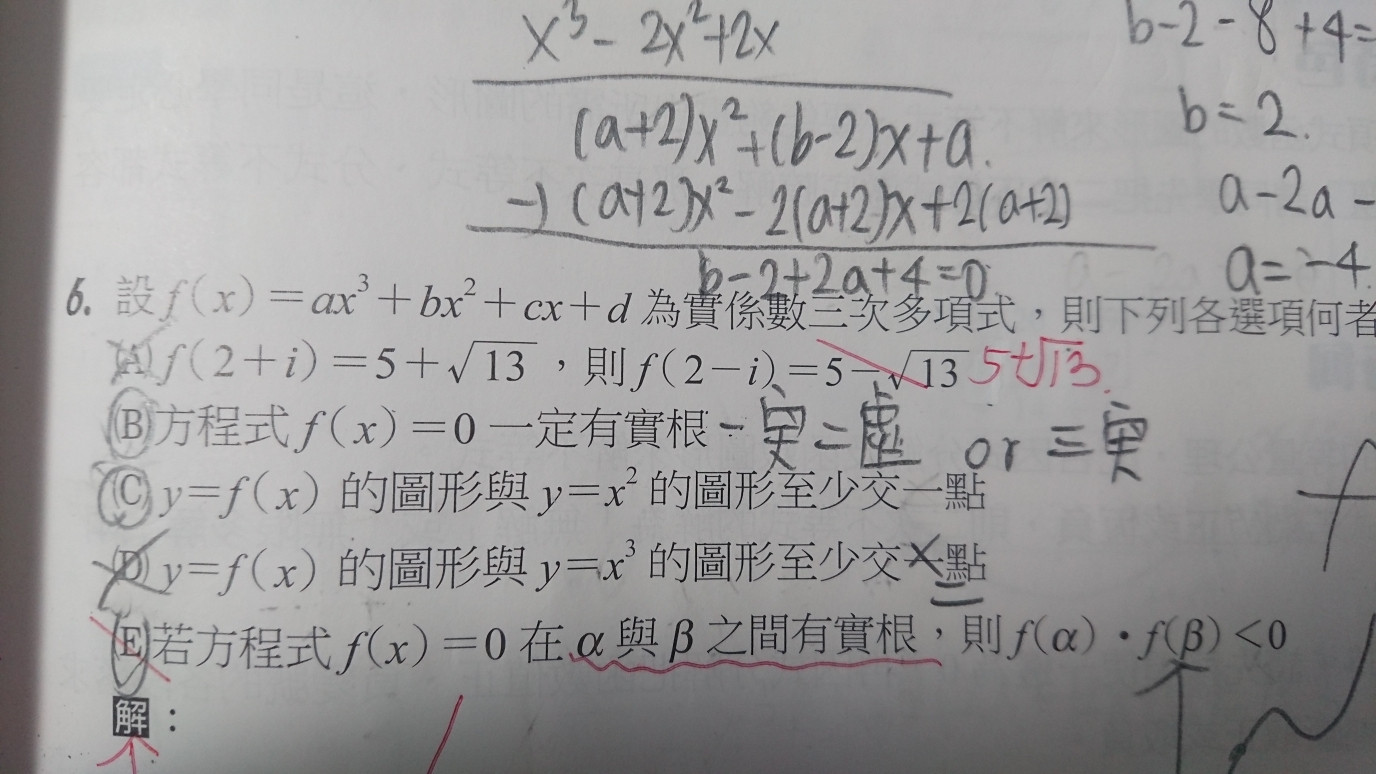 x³-2x²+2x
b-2-8+4=
(a+2)x²+(b-2)x+a.
b=2.
-) (a+2)x²-2(a+2)x+2(a+2)
a-2a-
b-2+2a+4=0.
a=-4.
6. 設f(x)=ax³+bx²+cx+d 為實係數三次多項式,則下列各選項何者
(A) f(2+i)=5+√13 ,則f(2-i)=5-√13 5+√13.
(B) 方程式f(x)=0 一定有實根 一实二虛 or 三实
(C) y=f(x) 的圖形與y=x² 的圖形至少交一點
(D) y=f(x) 的圖形與y=x³ 的圖形至少交一點
二
(E) 若方程式f(x)=0 在α與β之間有實根,則f(α)•f(β)<0
解: